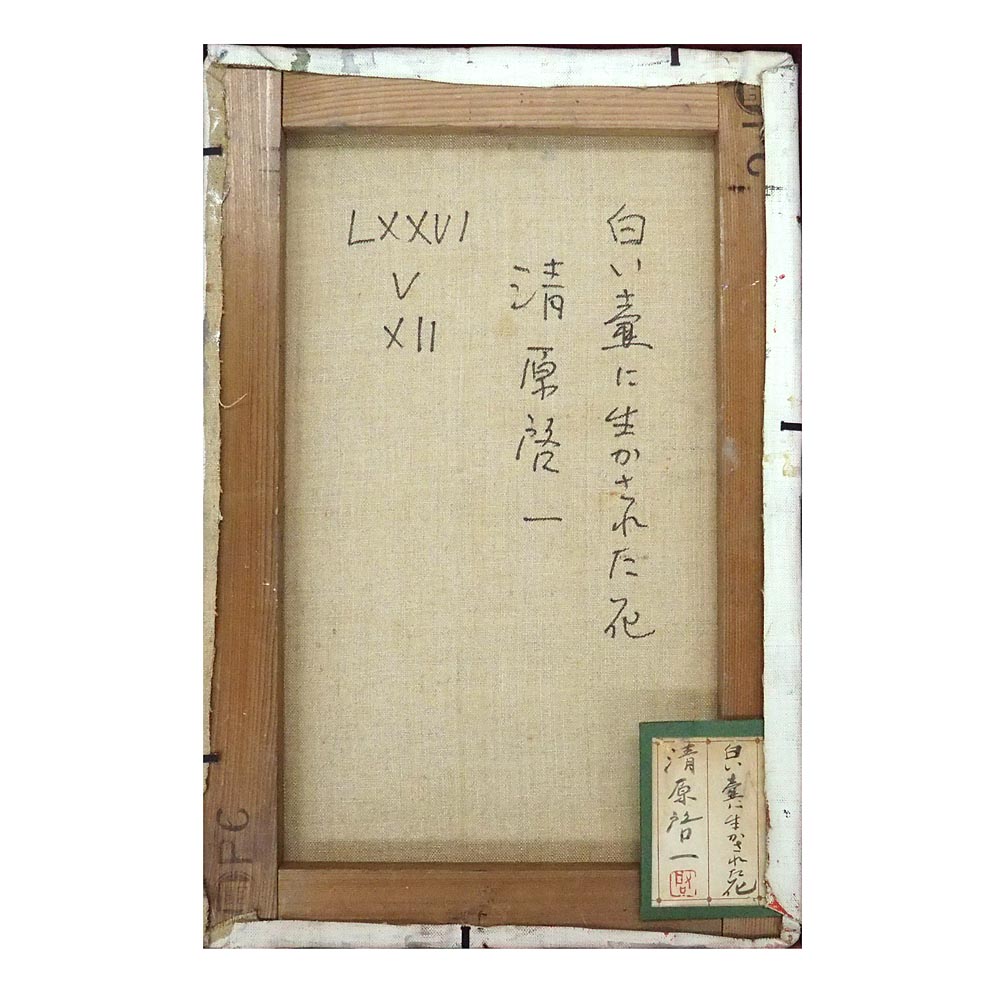 白い壷に生かされた花
清原啓一
LXXVI
V
XII
白い壷に生かされた花
清原啓一
啓